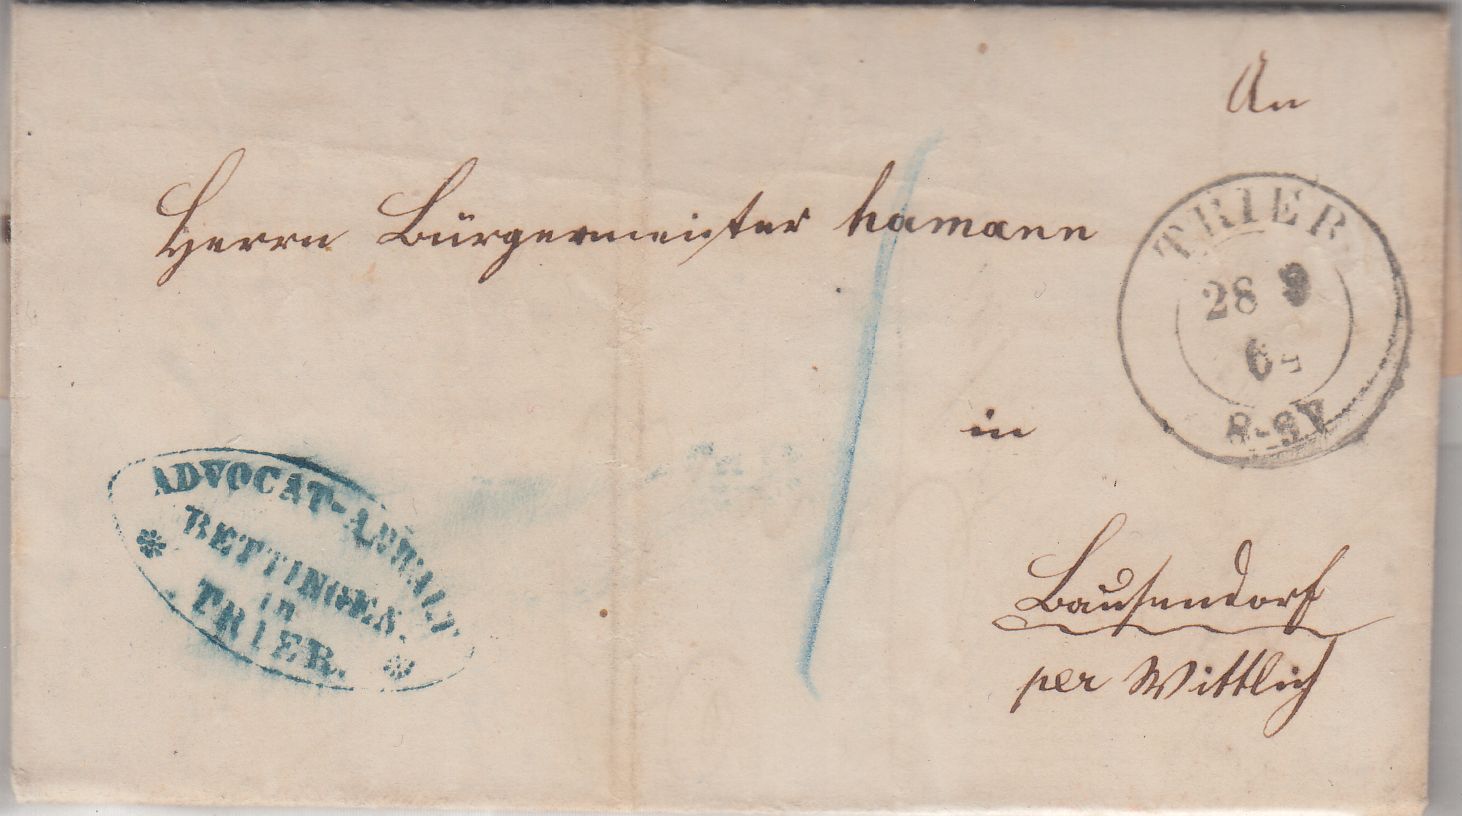 An
Herrn Bürgermeister hamann
in
Bausendorf
per Wittlich
TRIER
28 9
8-9V
ADVOCAT-ANWALT
BETTINGEN.
in
TRIER.